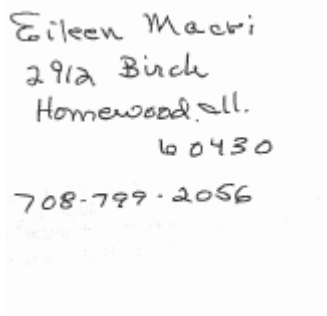 Eileen Macri
2912 Birch
Homewood, Ill.
60430
708-799-2056